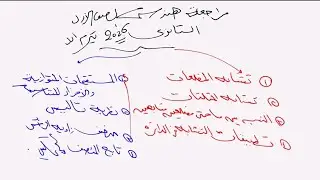 مراجعة هندسة الصف الأول
الثانوى 2026 ترم أول
① تشابه المضلعات
② تشابه المثلثات
③ النسبة بين مساحتى مضلعين متشابهين
④ تطبيقات التشابه فى الدائرة
① المستقيمات المتوازية
والأجزاء المتناسبة
② نظرية تاليس
③ منصف زاوية المثلث
④ تابع المنصف